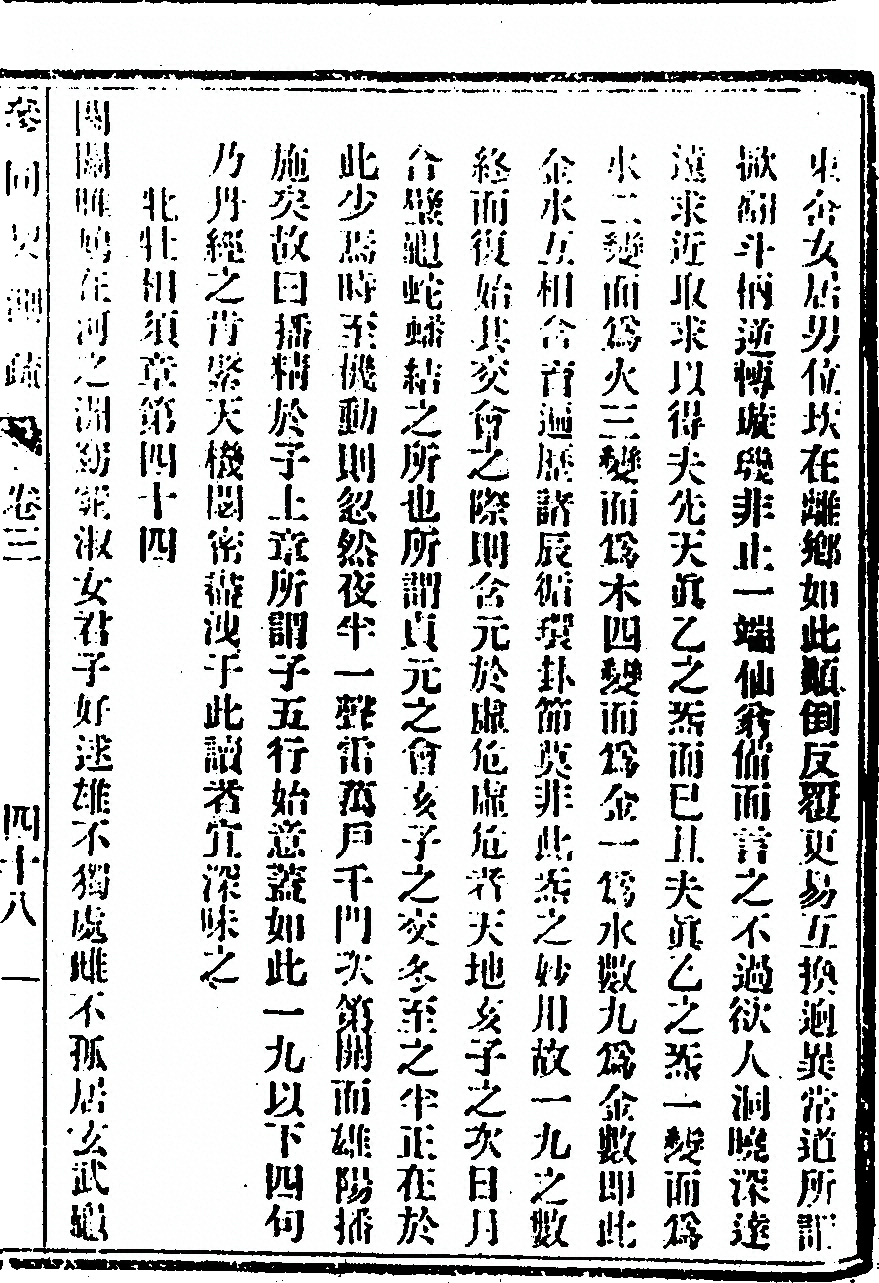 東舍女居男位坎在離鄉如此顛倒反覆更易互換迥異常道所謂
掀翻斗柄逆轉璇璣非止一端仙翁備而言之不過欲人洞曉深達
遠求近取求以得夫先天眞乙之炁而已且夫眞乙之炁一變而爲
水二變而爲火三變而爲木四變而爲金一爲水數九爲金數即此
金水互相含育遍歷諸辰循環卦節莫非此炁之妙用故一九之數
終而復始其交會之際則含元於虛危虛危者天地亥子之次日月
合璧龜蛇蟠結之所也所謂貞元之會亥子之交冬至之半正在於
此少焉時至機動則忽然夜半一聲雷萬戶千門次第開而雄陽播
施矣故曰播精於子上章所謂子五行始意蓋如此一九以下四句
乃丹經之肯綮天機閟密漏洩于此讀者宜深味之
牝牡相須章第四十四
關關雎鳩在河之洲窈窕淑女君子好逑雄不獨處雌不孤居玄武龜
參同契測疏 卷三 四十八